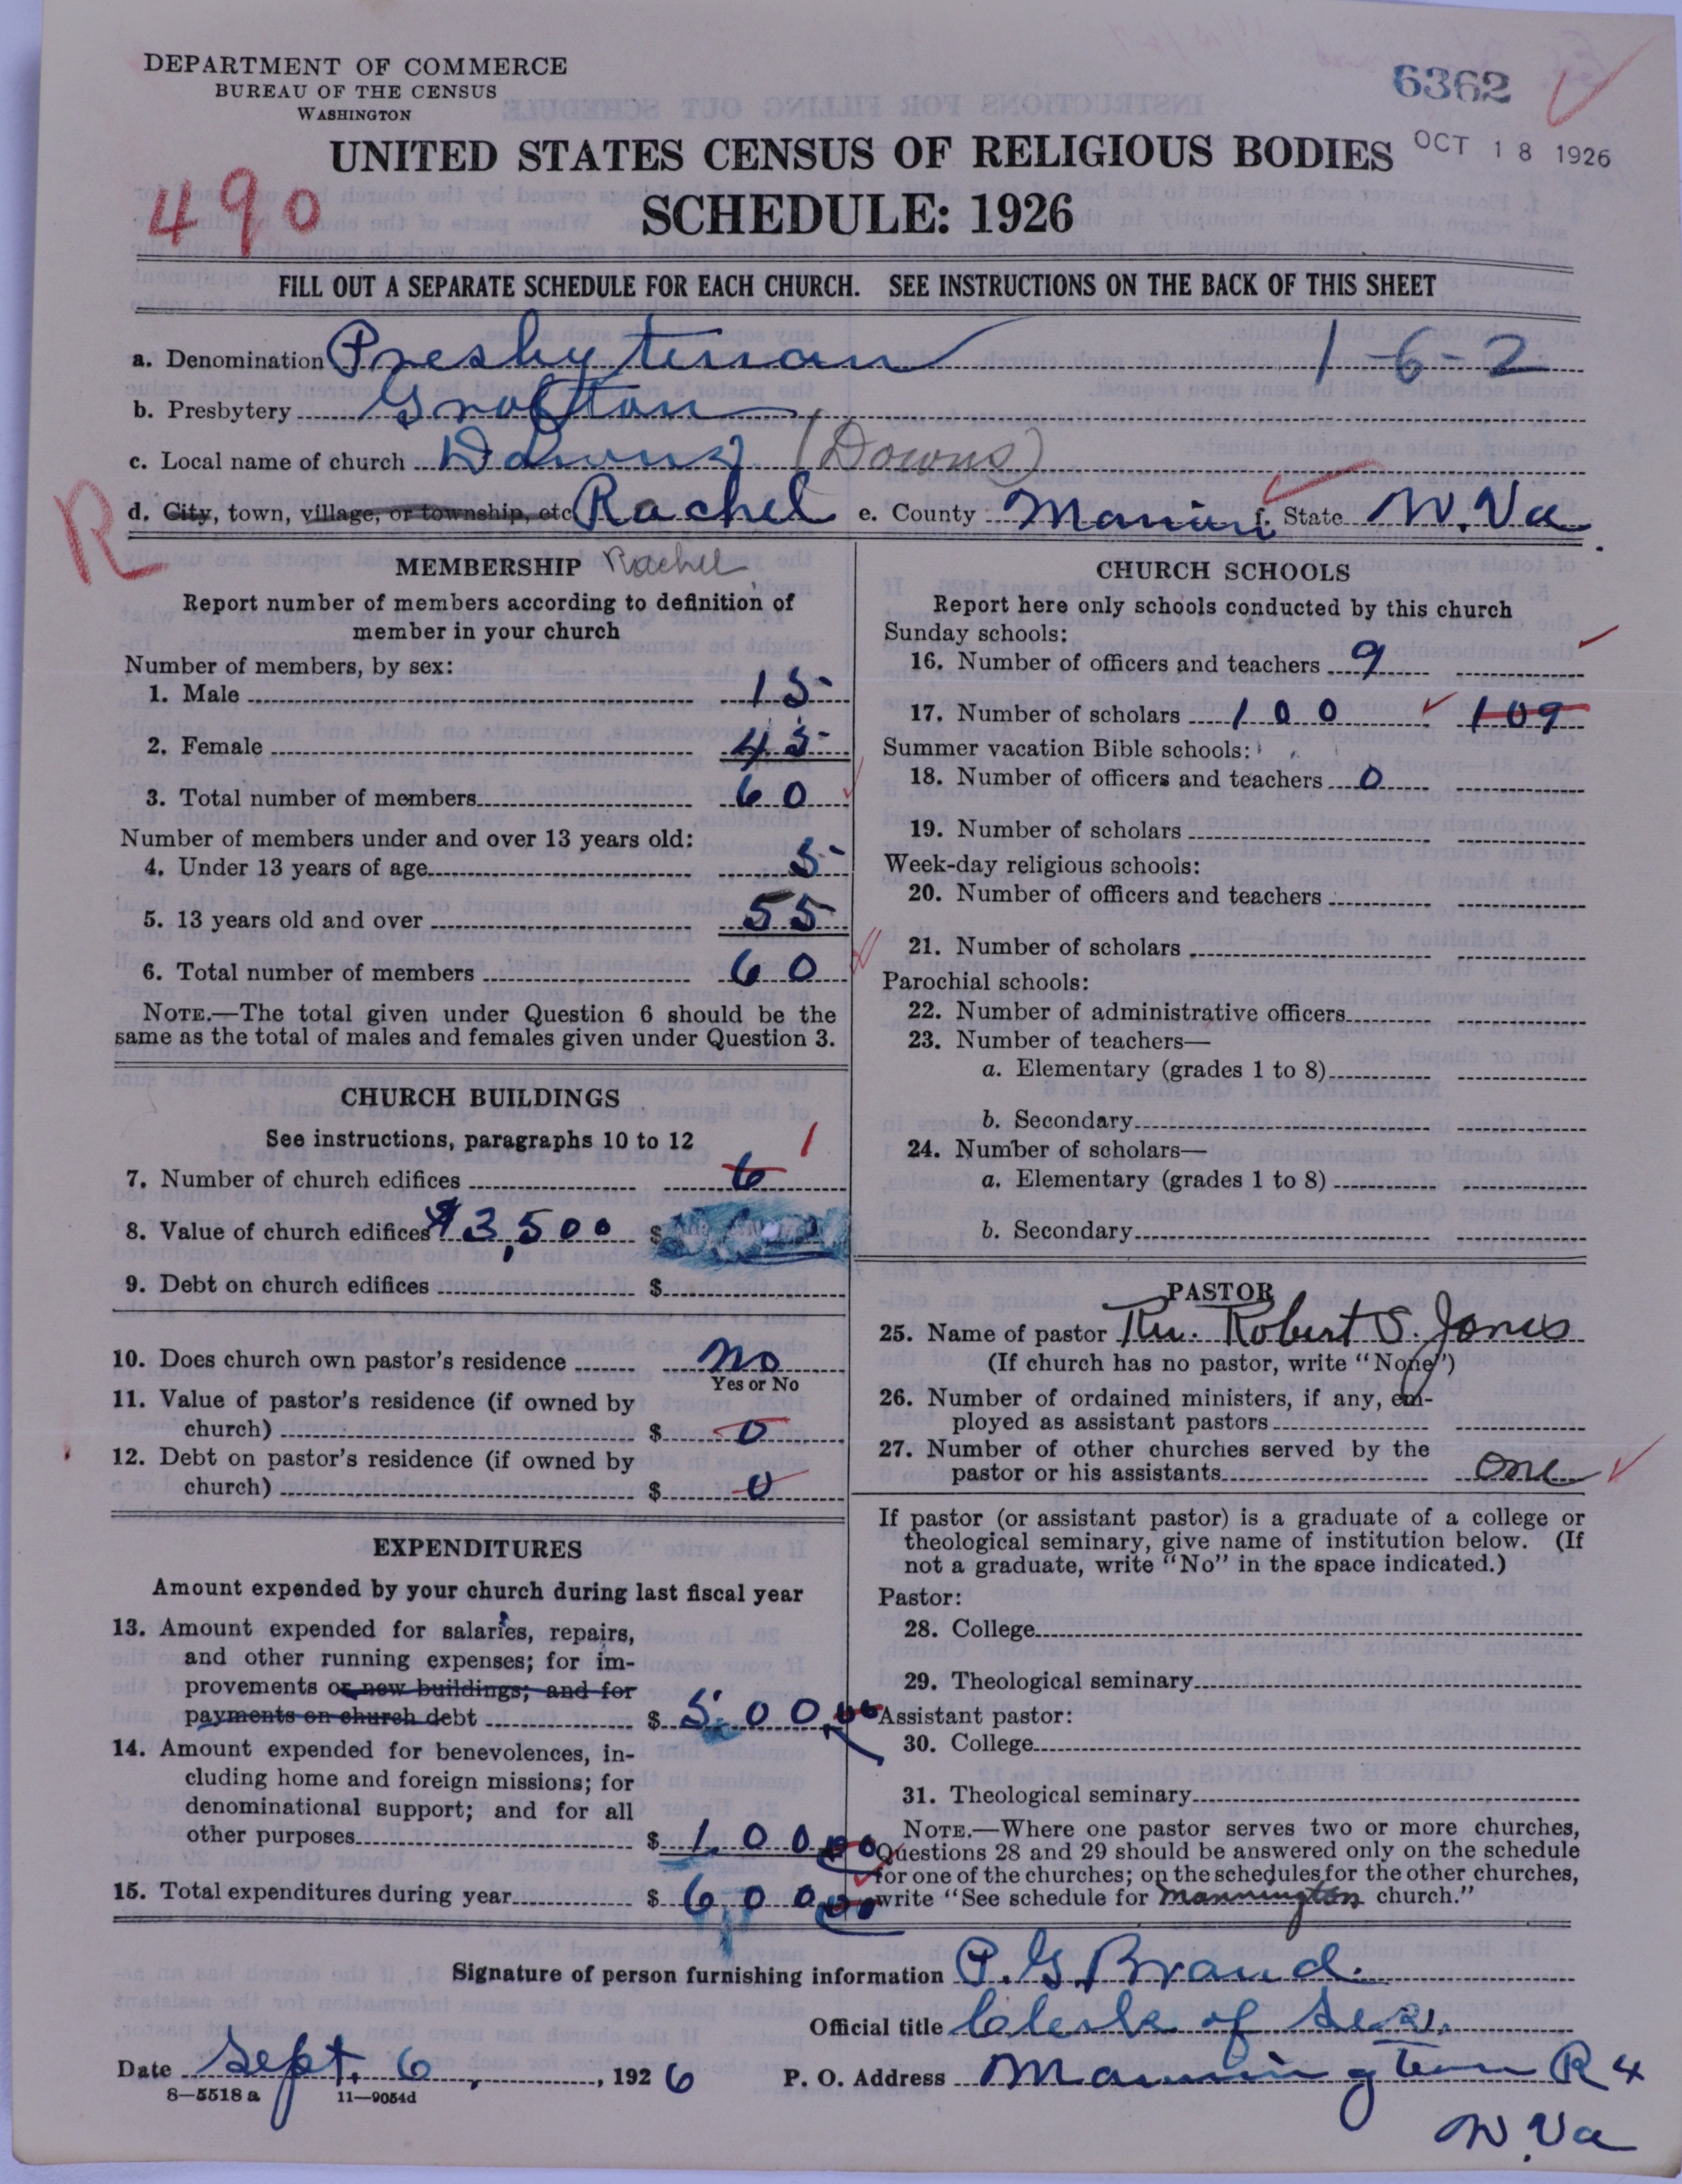 DEPARTMENT OF COMMERCE
BUREAU OF THE CENSUS
WASHINGTON
6362
UNITED STATES CENSUS OF RELIGIOUS BODIES
OCT 18 1926
490
SCHEDULE: 1926
FILL OUT A SEPARATE SCHEDULE FOR EACH CHURCH. SEE INSTRUCTIONS ON THE BACK OF THIS SHEET
a. Denomination Presbyterian 1-6-2
b. Presbytery Grafton
c. Local name of church Downs (Downs)
R
d. City, town, village, or township, etc Rachel e. County Marion f. State W. Va.
MEMBERSHIP Rachel
Report number of members according to definition of
member in your church
Number of members, by sex:
1. Male 15
2. Female 45
3. Total number of members 60
Number of members under and over 13 years old:
4. Under 13 years of age 5
5. 13 years old and over 55
6. Total number of members 60
NOTE.—The total given under Question 6 should be the
same as the total of males and females given under Question 3.
CHURCH BUILDINGS
See instructions, paragraphs 10 to 12
7. Number of church edifices 1
8. Value of church edifices $3,500 $
9. Debt on church edifices $
10. Does church own pastor's residence no
Yes or No
11. Value of pastor's residence (if owned by
church) $ 0
12. Debt on pastor's residence (if owned by
church) $ 0
EXPENDITURES
Amount expended by your church during last fiscal year
13. Amount expended for salaries, repairs,
and other running expenses; for im-
provements or new buildings; and for
payments on church debt $ 500 00
14. Amount expended for benevolences, in-
cluding home and foreign missions; for
denominational support; and for all
other purposes $ 100 00
15. Total expenditures during year $ 600 00
CHURCH SCHOOLS
Report here only schools conducted by this church
Sunday schools:
16. Number of officers and teachers 9
17. Number of scholars 100 109
Summer vacation Bible schools:
18. Number of officers and teachers 0
19. Number of scholars
Week-day religious schools:
20. Number of officers and teachers
21. Number of scholars
Parochial schools:
22. Number of administrative officers
23. Number of teachers—
a. Elementary (grades 1 to 8)
b. Secondary
24. Number of scholars—
a. Elementary (grades 1 to 8)
b. Secondary
PASTOR
25. Name of pastor Rev. Robert S. Jones
(If church has no pastor, write "None")
26. Number of ordained ministers, if any, em-
ployed as assistant pastors
27. Number of other churches served by the
pastor or his assistants one
If pastor (or assistant pastor) is a graduate of a college or
theological seminary, give name of institution below. (If
not a graduate, write "No" in the space indicated.)
Pastor:
28. College
29. Theological seminary
Assistant pastor:
30. College
31. Theological seminary
NOTE.—Where one pastor serves two or more churches,
Questions 28 and 29 should be answered only on the schedule
for one of the churches; on the schedules for the other churches,
write "See schedule for Mannington church."
Signature of person furnishing information P. G. Brand.
Official title Clerk of Ses.
Date Sept. 6, 1926 P. O. Address Mannington R 4
8—5518 a 11—9054d
W. Va